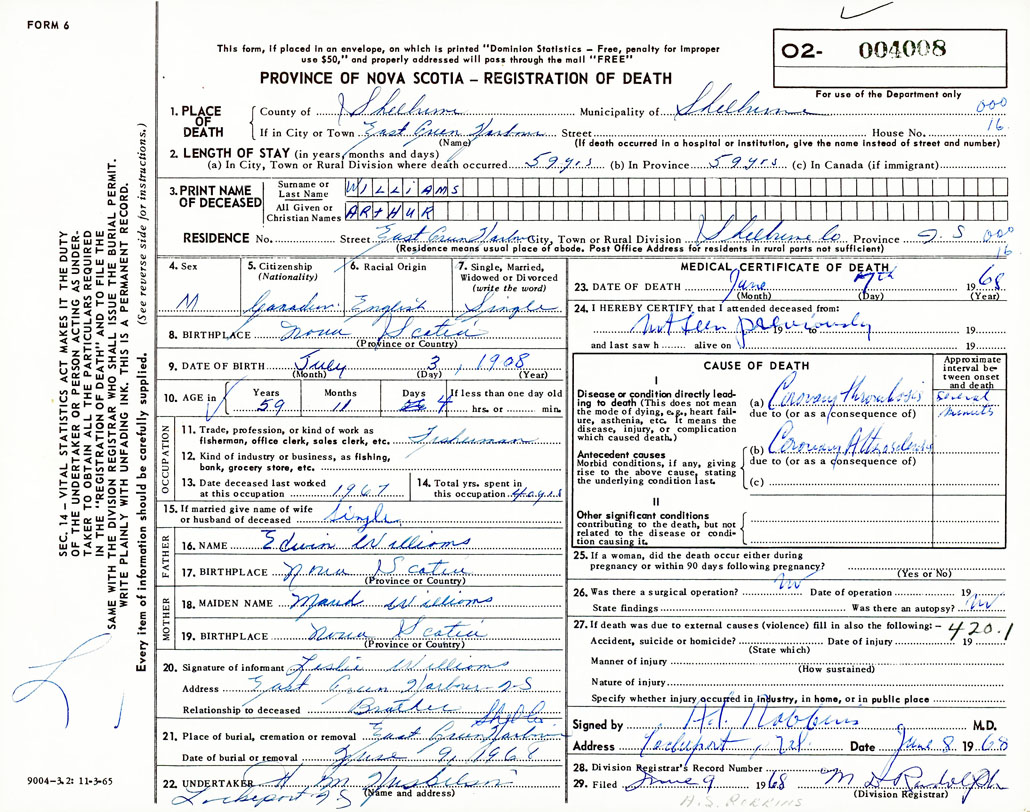 FORM 6
This form, if placed in an envelope, on which is printed "Dominion Statistics – Free, penalty for improper
use $50," and properly addressed will pass through the mail "FREE"
PROVINCE OF NOVA SCOTIA – REGISTRATION OF DEATH
O2- 004008
For use of the Department only
SEC. 14 – VITAL STATISTICS ACT MAKES IT THE DUTY
OF THE UNDERTAKER OR PERSON ACTING AS UNDER-
TAKER TO OBTAIN ALL THE PARTICULARS REQUIRED
IN THE "REGISTRATION OF DEATH" AND TO FILE THE
SAME WITH THE DIVISION REGISTRAR WHO SHALL ISSUE THE BURIAL PERMIT.
WRITE PLAINLY WITH UNFADING INK. THIS IS A PERMANENT RECORD.
Every item of information should be carefully supplied. (See reverse side for instructions.)
1. PLACE OF DEATH County of Shelburne Municipality of Shelburne 000
If in City or Town East Green Harbour Street House No. 16
(Name) (If death occurred in a hospital or institution, give the name instead of street and number)
2. LENGTH OF STAY (in years, months and days)
(a) In City, Town or Rural Division where death occurred 59 yrs (b) In Province 59 yrs (c) In Canada (if immigrant)
3. PRINT NAME OF DECEASED Surname or Last Name WILLIAMS
All Given or Christian Names ARTHUR
RESIDENCE No. Street East Green Harbour City, Town or Rural Division Shelburne Co Province N.S 000
(Residence means usual place of abode. Post Office Address for residents in rural parts not sufficient) 16
4. Sex M
5. Citizenship (Nationality) Canadian
6. Racial Origin English
7. Single, Married, Widowed or Divorced (write the word) Single
8. BIRTHPLACE Nova Scotia
(Province or Country)
9. DATE OF BIRTH July 3, 1908
(Month) (Day) (Year)
10. AGE Years 59 Months 11 Days 4 If less than one day old hrs. or min.
OCCUPATION
11. Trade, profession or kind of work as fisherman, office clerk, sales clerk, etc. Fisherman
12. Kind of industry or business, as fishing, bank, grocery store, etc.
13. Date deceased last worked at this occupation 1967
14. Total yrs. spent in this occupation 40 yrs
15. If married give name of wife or husband of deceased Single
FATHER
16. NAME Edwin Williams
17. BIRTHPLACE Nova Scotia
(Province or Country)
MOTHER
18. MAIDEN NAME Maud Williams
19. BIRTHPLACE Nova Scotia
(Province or Country)
20. Signature of informant Leslie Williams
Address East Green Harbour N-S
Relationship to deceased Brother
21. Place of burial, cremation or removal East Green Harbour Shel Co
Date of burial or removal June 9, 1968
22. UNDERTAKER H M
(Name and address)
Lockeport N S
9004-3.2: 11-3-65
MEDICAL CERTIFICATE OF DEATH
23. DATE OF DEATH June 7th 1968
(Month) (Day) (Year)
24. I HEREBY CERTIFY that I attended deceased from:
not seen previously 19 to 19
and last saw h alive on 19
CAUSE OF DEATH
Approximate interval between onset and death
I
Disease or condition directly leading to death (This does not mean the mode of dying, e.g., heart failure, asthenia, etc. It means the disease, injury, or complication which caused death.)
(a) Coronary thrombosis several minutes
due to (or as a consequence of)
Antecedent causes
Morbid conditions, if any, giving rise to the above cause, stating the underlying condition last.
(b) Coronary Atherosclerosis
due to (or as a consequence of)
(c)
II
Other significant conditions
contributing to the death, but not related to the disease or condition causing it.
25. If a woman, did the death occur either during
pregnancy or within 90 days following pregnancy?
(Yes or No)
26. Was there a surgical operation? no Date of operation 19
State findings Was there an autopsy? no
27. If death was due to external causes (violence) fill in also the following:– 420.1
Accident, suicide or homicide? Date of injury 19
(State which)
Manner of injury
(How sustained)
Nature of injury
Specify whether injury occurred in industry, in home, or in public place
Signed by M.D.
Address Lockeport, N.S. Date June 8 1968
28. Division Registrar's Record Number
29. Filed June 9 1968
(Division Registrar)